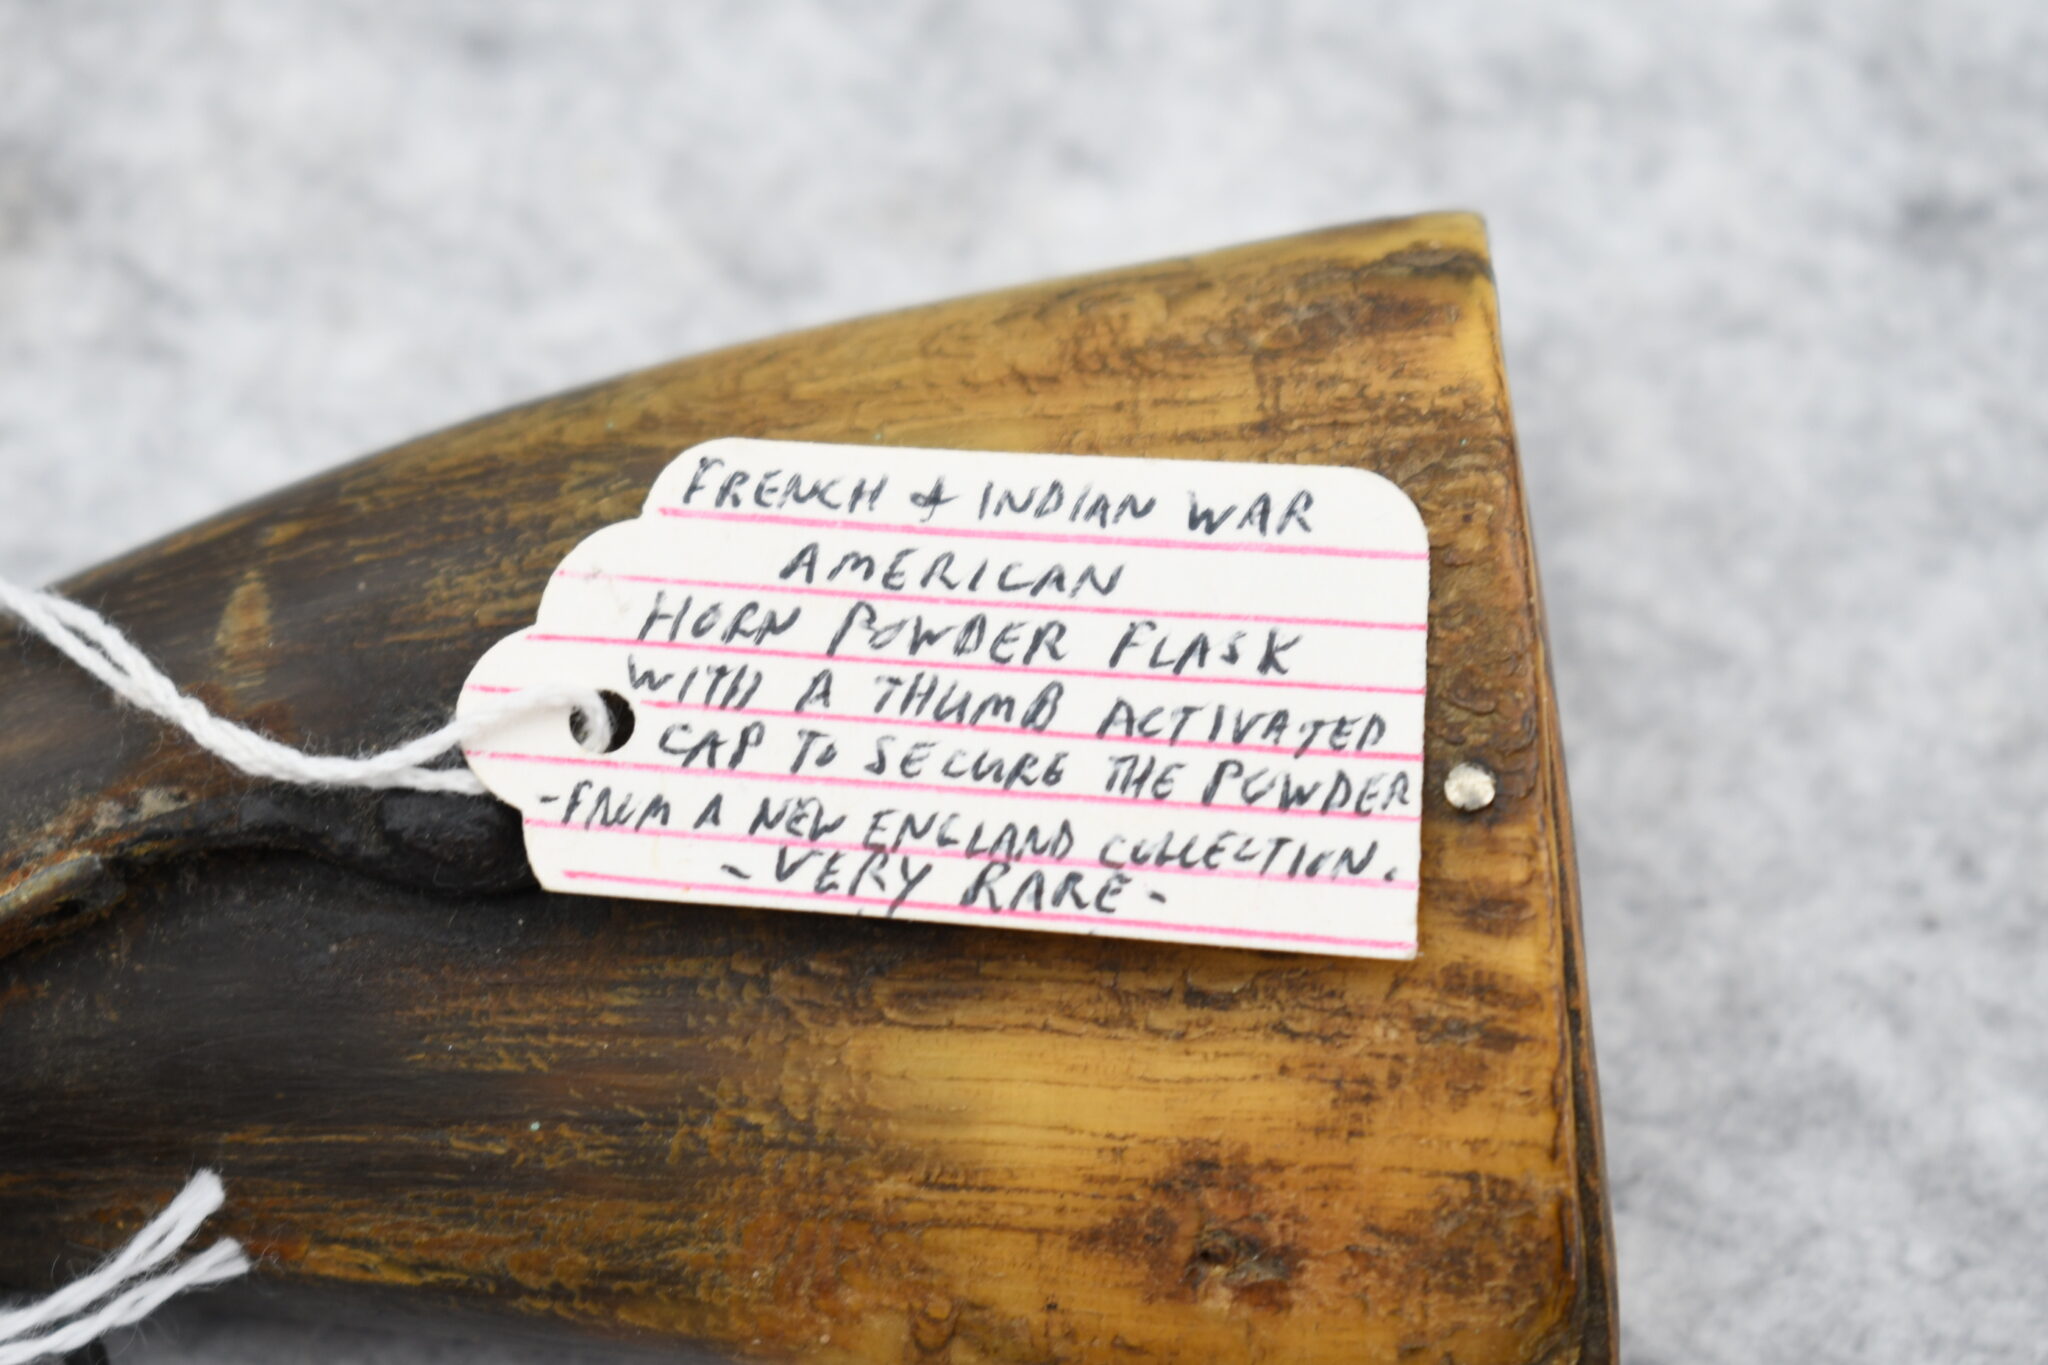 FRENCH & INDIAN WAR
AMERICAN
HORN POWDER FLASK
WITH A THUMB ACTIVATED
CAP TO SECURE THE POWDER
-FROM A NEW ENGLAND COLLECTION.
-VERY RARE-